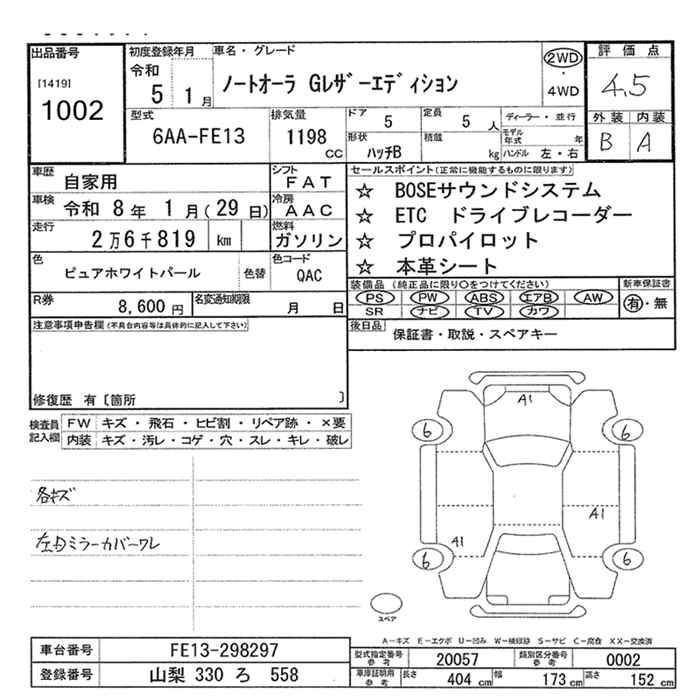 出品番号
[1419]
1002
初度登録年月
令和
5 1月
車名・グレード
ノートオーラ Gレザーエディション
2WD
・
4WD
評価点
4.5
外装 内装
B A
型式
6AA-FE13
排気量
1198
CC
ドア
5
定員
5 人
形状
ハッチB
積載
kg
ディーラー・並行
モデル年式 年
ハンドル 左・右
車歴
自家用
シフト
FAT
車検
令和 8年 1月(29日)
冷房
AAC
走行
2万6千819 km
燃料
ガソリン
色
ピュアホワイトパール
色替
色コード
QAC
R券
8,600 円
名変通知期限
月 日
セールスポイント(正常に機能するものに限ります)
☆ BOSEサウンドシステム
☆ ETC ドライブレコーダー
☆ プロパイロット
☆ 本革シート
装備品(純正品に限り○をつけてください)
PS PW ABS エアB AW
SR ナビ TV カワ
新車保証書
有・無
後日品
保証書・取説・スペアキー
注意事項申告欄(不具合内容等は具体的に記入して下さい)
修復歴 有〔箇所 〕
検査員記入欄
FW キズ・飛石・ヒビ割・リペア跡・×要
内装 キズ・汚レ・コゲ・穴・スレ・キレ・破レ
各キズ
左右ミラーカバーワレ
A1
6 6
A1
A1
6 6
スペア
A-キズ E-エクボ U-凹み W-補修跡 S-サビ C-腐食 XX-交換済
車台番号
FE13-298297
登録番号
山梨 330 ろ 558
型式指定番号
参考
20057
類別区分番号
参考
0002
車庫証明用
参考
長さ
404 cm
幅
173 cm
高さ
152 cm